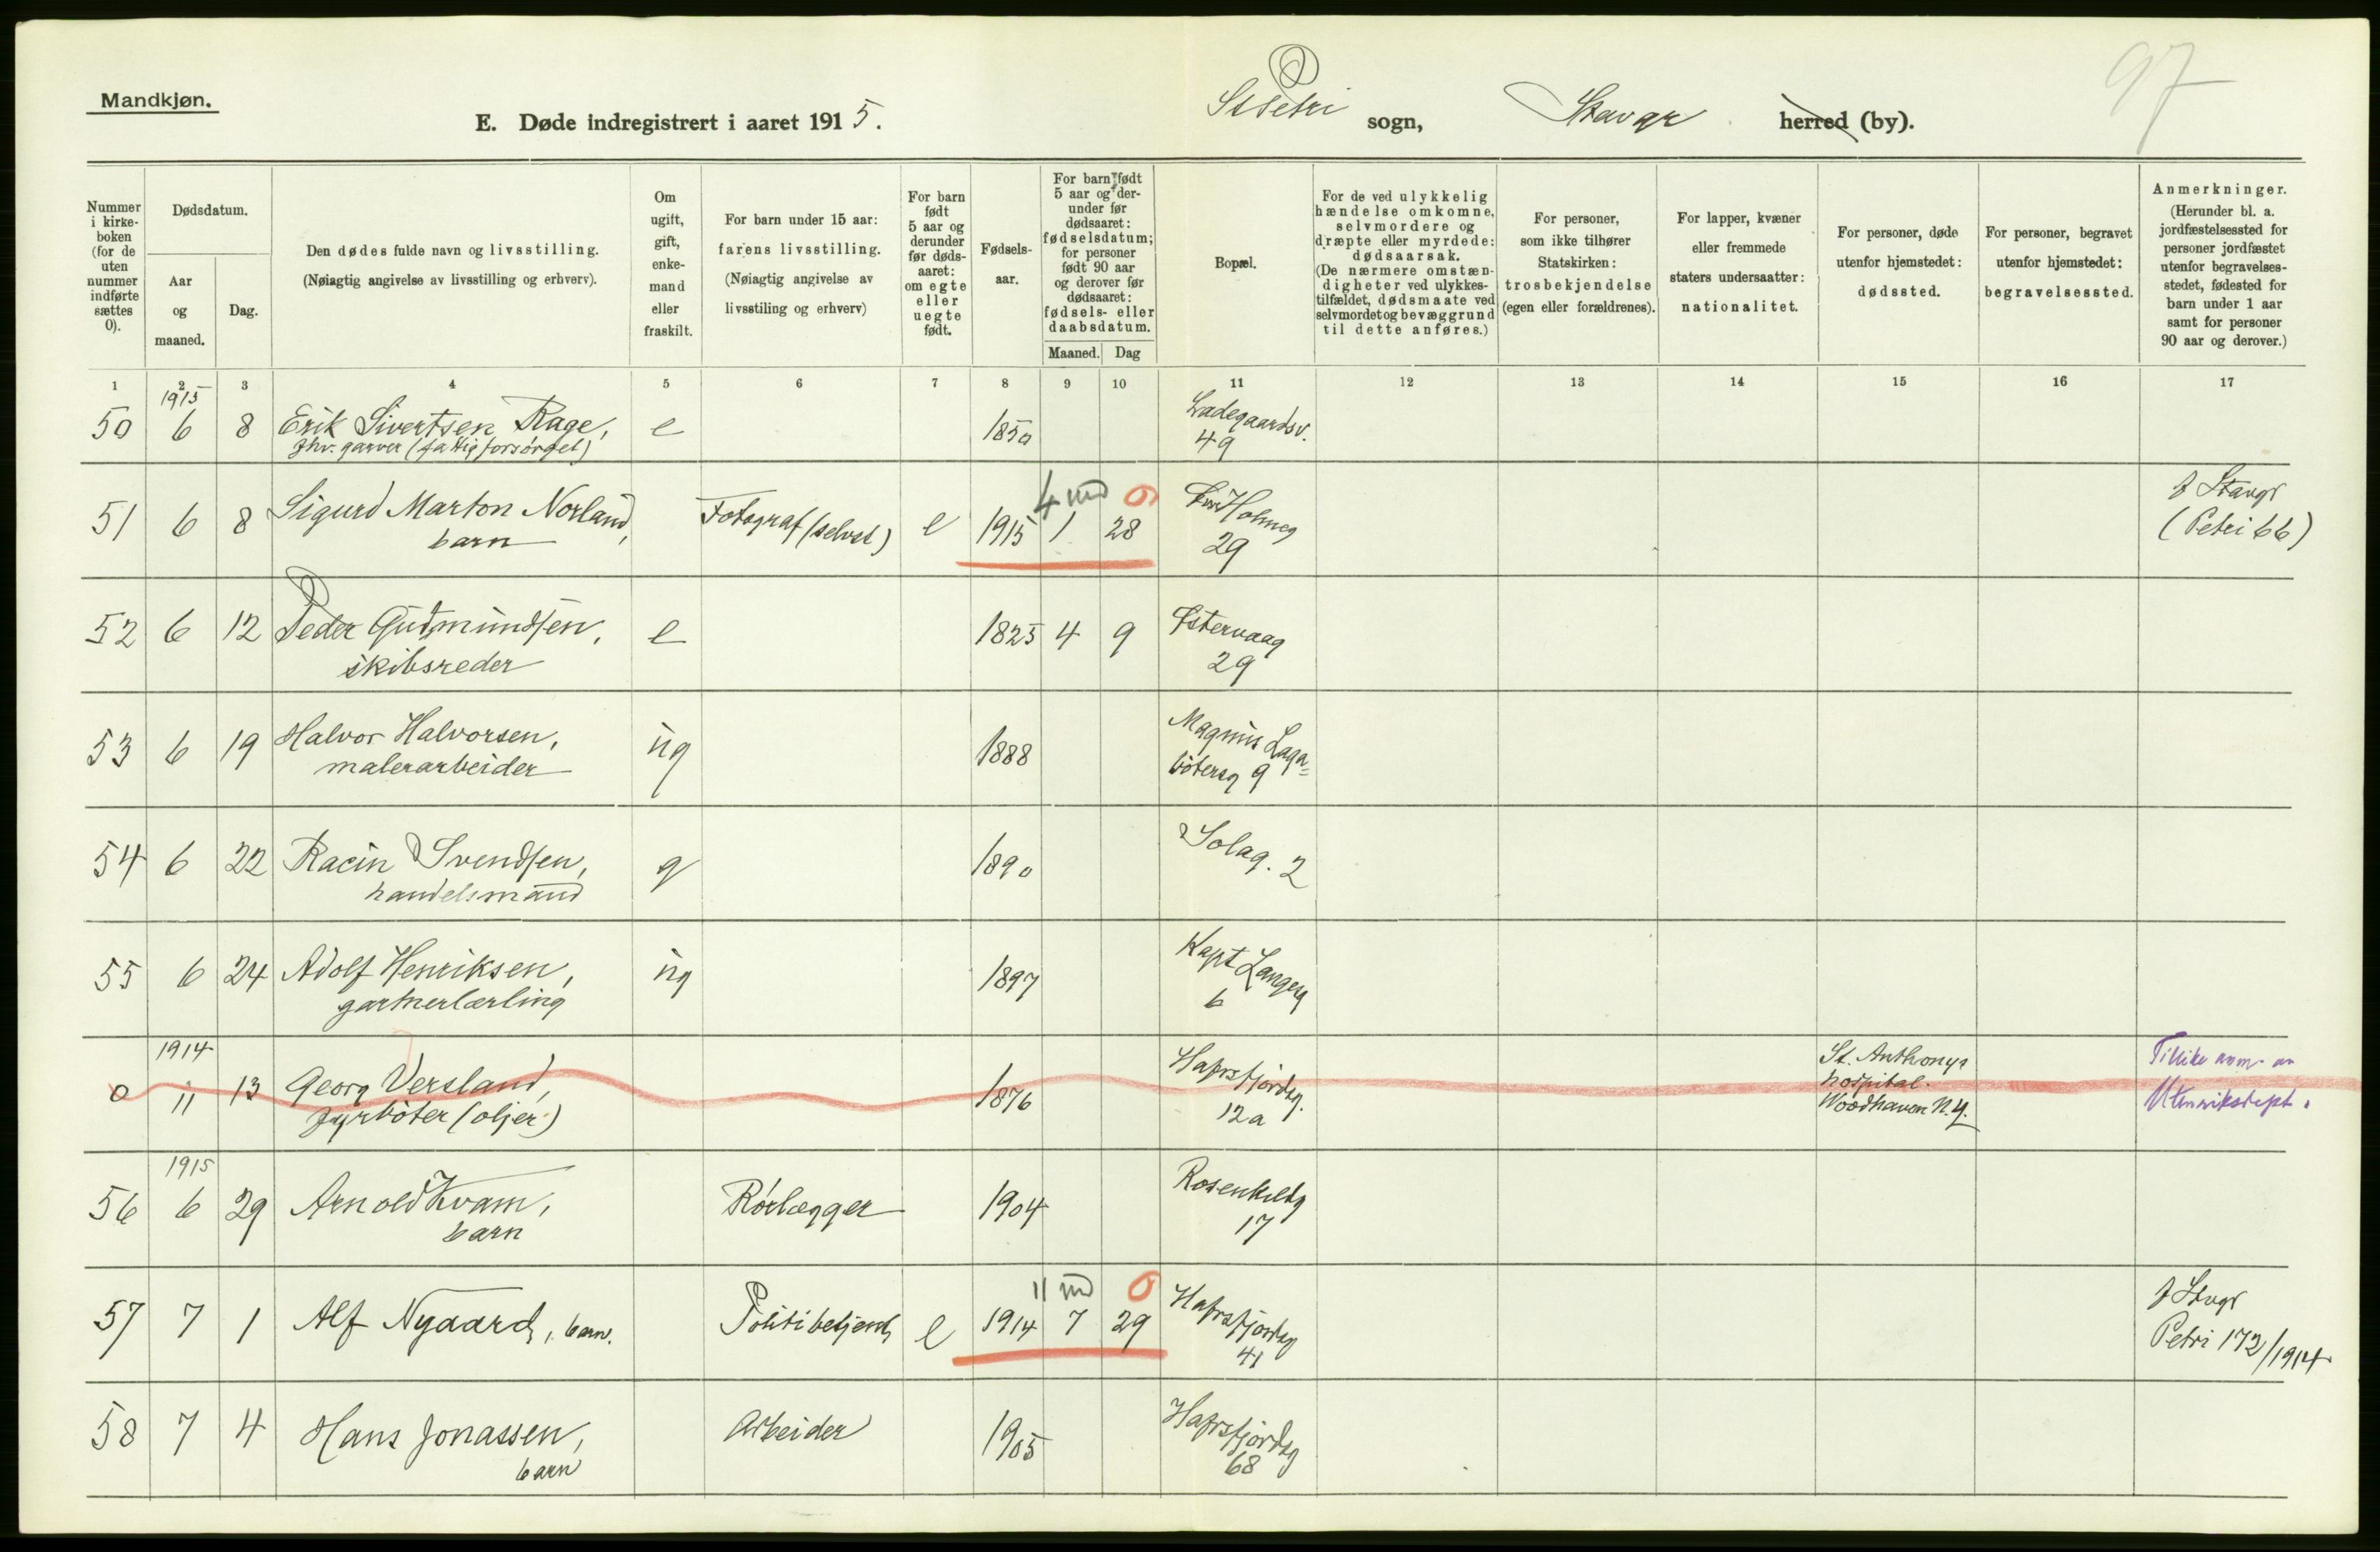 Mandkjøn.
97
E. Døde indregistrert i aaret 1915. St Petri sogn, Stavgr herred (by).
Nummer i kirke-boken (for de uten nummer indførte sættes 0).
Dødsdatum.
Aar og maaned.
Dag.
Den dødes fulde navn og livsstilling.
(Nøiagtig angivelse av livsstilling og erhverv).
Om ugift, gift, enke-mand eller fraskilt.
For barn under 15 aar: farens livsstilling.
(Nøiagtig angivelse av livsstiling og erhverv)
For barn født 5 aar og derunder før døds-aaret: om egte eller uegte født.
Fødsels-aar.
For barn født 5 aar og der-under før dødsaaret: fødselsdatum; for personer født 90 aar og derover før dødsaaret: fødsels- eller daabsdatum.
Maaned. Dag
Bopæl.
For de ved ulykkelig hændelse omkomne, selvmordere og dræpte eller myrdede: dødsaarsak.
(De nærmere omstæn-digheter ved ulykkes-tilfældet, dødsmaate ved selvmordet og bevæggrund til dette anføres.)
For personer, som ikke tilhører Statskirken: trosbekjendelse (egen eller forældrenes).
For lapper, kvæner eller fremmede staters undersaatter: nationalitet.
For personer, døde utenfor hjemstedet: dødssted.
For personer, begravet utenfor hjemstedet: begravelsessted.
Anmerkninger.
(Herunder bl. a. jordfæstelsessted for personer jordfæstet utenfor begravelses-stedet, fødested for barn under 1 aar samt for personer 90 aar og derover.)
1 2 3 4 5 6 7 8 9 10 11 12 13 14 15 16 17
1915
50 6 8 Erik Sivertsen Rage, e 1850 Ladegaardsv. 49
fhv. garver (fattigforsørget)
4 md 0
51 6 8 Sigurd Marton Norland, Fotograf (selvst) e 1915 1 28 Holmeg 29 f Stavgr
barn (Petri 66)
52 6 12 Peder Gudmundsen, e 1825 4 9 Østervaag 29
skibsreder
53 6 19 Halvor Halvorsen, ug 1888 Magnus Laga=
malerarbeider bøtersg 9
54 6 22 Racin Svendsen, g 1890 Solag. 2
handelsmand
55 6 24 Adolf Henriksen, ug 1897 Kapt Langeg 6
gartnerlærling
1914
0 11 13 Georg Versland, 1876 Hafrsfjordsg. 12a St. Anthonys hospital. Woodhaven N.Y. Tillike anm. av
fyrbøter (oljer) Utenriksdept.
1915
56 6 29 Arnold Kvam, Rørlægger 1904 Rosenkildg 17
barn
11 md 0
57 7 1 Alf Nygaard, barn. Politibetjent e 1914 7 29 Hafrsfjordsg 41 f Stvgr
Petri 172/1914
58 7 4 Hans Jonassen, Arbeider 1905 Hafrsfjordsg 68
barn